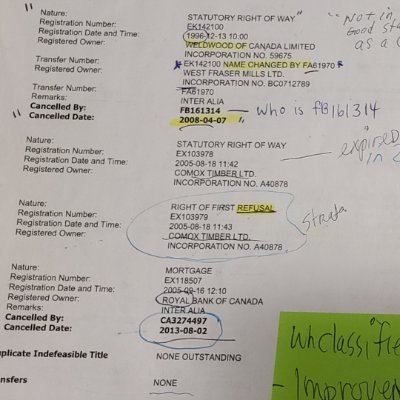 Nature: STATUTORY RIGHT OF WAY "Not in
Registration Number: EK142100 Good
Registration Date and Time: 1996-12-13 10:00 as a
Registered Owner: WELDWOOD OF CANADA LIMITED
INCORPORATION NO. 59675
Transfer Number: EK142100 NAME CHANGED BY FA61970
Registered Owner: WEST FRASER MILLS LTD.
INCORPORATION NO. BC0712789
Transfer Number: FA61970
Remarks: INTER ALIA
Cancelled By: FB161314 who is fB161314
Cancelled Date: 2008-04-07
Nature: STATUTORY RIGHT OF WAY
Registration Number: EX103978 expired
Registration Date and Time: 2005-08-18 11:42 in
Registered Owner: COMOX TIMBER LTD.
INCORPORATION NO. A40878
Nature: RIGHT OF FIRST REFUSAL
Registration Number: EX103979 Strata
Registration Date and Time: 2005-08-18 11:43
Registered Owner: COMOX TIMBER LTD.
INCORPORATION NO. A40878
Nature: MORTGAGE
Registration Number: EX118507
Registration Date and Time: 2005-09-16 12:10
Registered Owner: ROYAL BANK OF CANADA
Remarks: INTER ALIA
Cancelled By: CA3274497
Cancelled Date: 2013-08-02
uplicate Indefeasible Title NONE OUTSTANDING
ansfers NONE
Unclassifie
- Improve